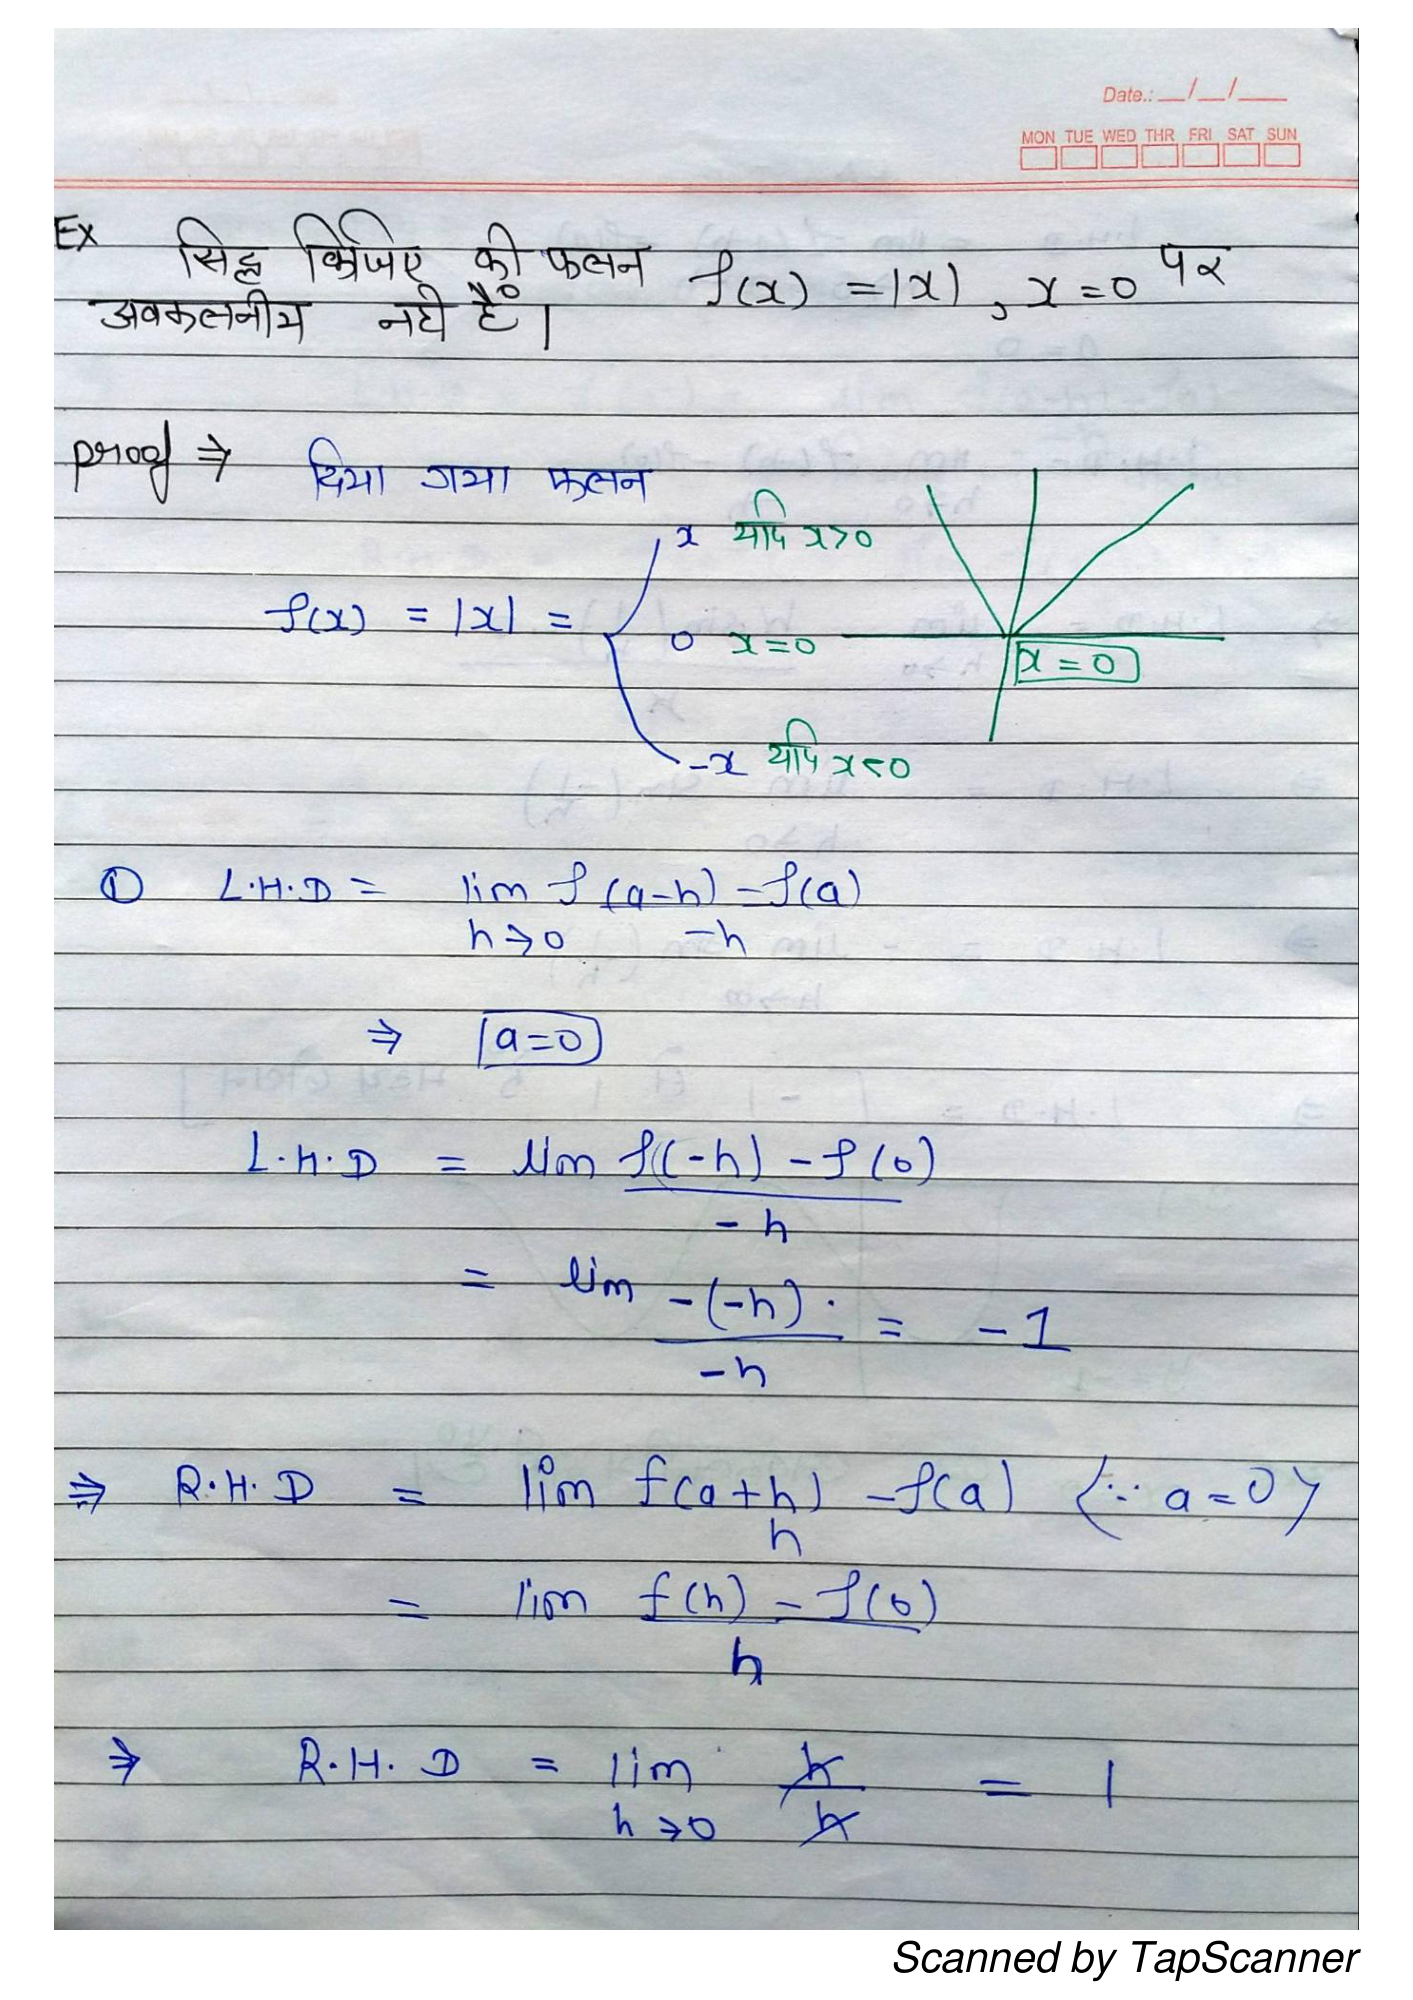 Date.: __/__/____
MON TUE WED THR FRI SAT SUN
Ex सिद्ध किजिए की फलन f(x) = |x| , x = 0 पर
अवकलनीय नही है।
proof ⇒ दिया गया फलन
x यदि x>0
f(x) = |x| = 0 x=0
x = 0
-x यदि x<0
① L.H.D = lim f(a-h) - f(a)
h→0 -h
⇒ a=0
L.H.D = lim f(-h) - f(0)
-h
= lim -(-h) . = -1
-h
⇒ R.H.D = lim f(a+h) - f(a) {∵ a=0}
h
= lim f(h) - f(0)
h
⇒ R.H.D = lim h = 1
h→0 h
Scanned by TapScanner